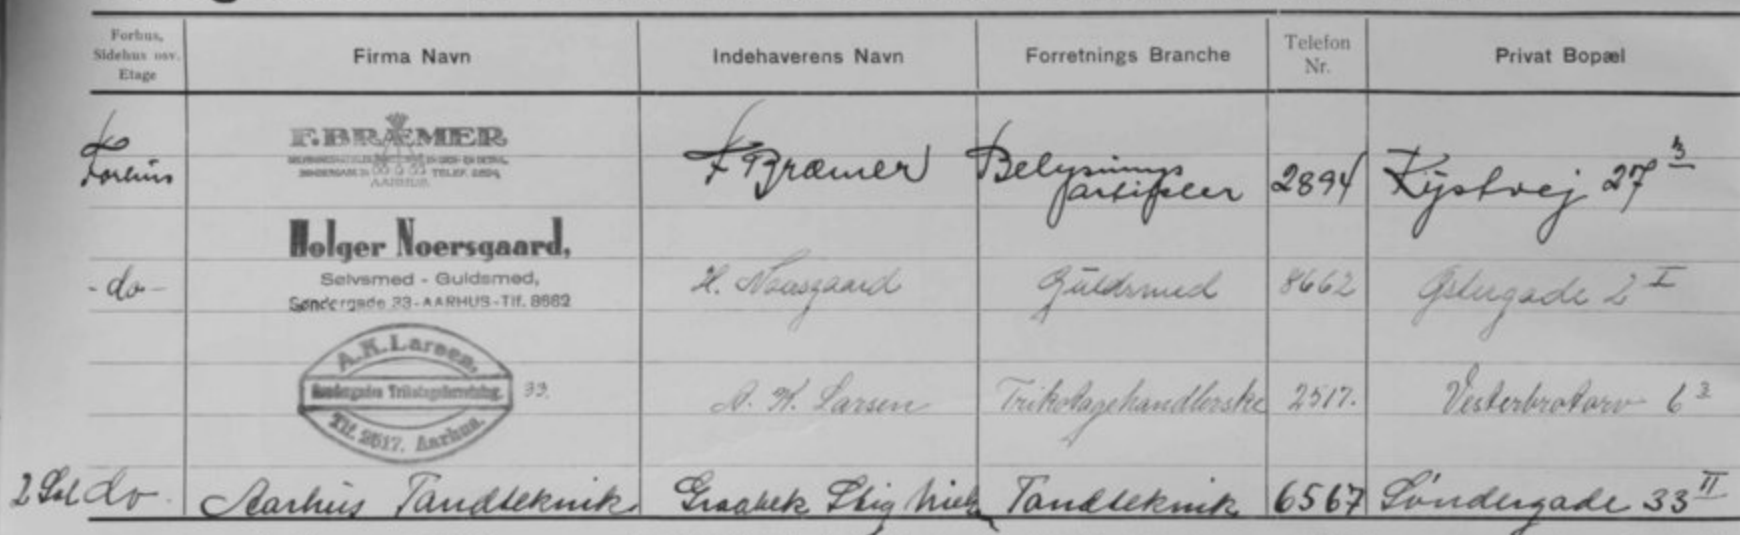 Forhus,
Sidehus osv.
Etage
Firma Navn
Indehaverens Navn
Forretnings Branche
Telefon
Nr.
Privat Bopæl
Forhus
F. BRÆMER
SØNDERGADE 33 TELEF. 2894
AARHUS
F Bræmer
Belysnings
artikler
2894
Kystvej 27 3
- do -
Holger Noersgaard,
Sølvsmed - Guldsmed,
Søndergade 33 - AARHUS - Tlf. 8662
H. Noersgaard
Guldsmed
8662
Østergade 2 I
A. K. Larsen,
Søndergades Trikotageforretning.
Tlf. 2517. Aarhus.
33.
A. K. Larsen
Trikotagehandlerske
2517.
Vesterbrotorv 6 3
2 Sal do.
Aarhus Tandteknik
Graabek Stig
Tandteknik
6567
Söndergade 33 II